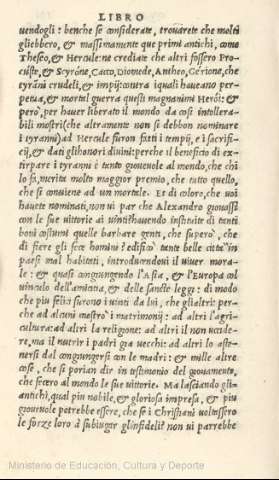 LIBRO
uendogli: benche se considerate, trouarete che molti
gliebbero, & massimamente que primi antichi, como
Theseo, & Hercule: ne crediate che altri fossero Pro-
custe, & Scyrone, Cacco, Diomede, Antheo, Gerione, che
tyrāni crudeli, & impij: contra iquali haueano per-
petua, & mortal guerra questi magnanimi Heròi: &
però, per hauer liberato il mondo da cosi intollera-
bili mostri (che altramente non si debbon nominare
i tyranni) ad Hercule furon fatti i tempij, e i sacrifi-
cij, & dati gli honori diuini: perche il beneficio di ex-
tirpare i tyranni è tanto gioueuole al mondo, che chi
lo fà, merita molto maggior premio, che tutto quello,
che si conuiene ad un mortale. Et di coloro, che uoi
hauete nominati, non ui par che Alexandro giouasse
con le sue uittorie ai uinti? hauendo instituite di tanti
boni costumi quelle barbare genti, che superò, che
di fiere gli fece homini? edificò tante belle città in
paesi mal habitati, introducendoui il uiuer mora-
le: & quasi congiungendo l'Asia, & l'Europa col
uinculo dell'amicitia, & delle sancte leggi: di modo
che piu felici furono i uinti da lui, che gli altri: per-
che ad alcuni mostrò i matrimonij: ad altri l'agri-
cultura: ad altri la religione: ad altri il non uccide-
re, ma il nutrir i padri gia uecchi: ad altri lo aste-
nersi dal congiungersi con le madri: & mille altre
cose, che si porian dir in testimonio del giouamento,
che fecero al mondo le sue uittorie. Ma lasciando gli-
antichi, qual piu nobile, & gloriosa impresa, & piu
gioueuole potrebbe essere, che se i Christiani uoltassero
le forze loro à subiugar gl'infideli? non ui parrebbe
Ministerio de Educación, Cultura y Deporte